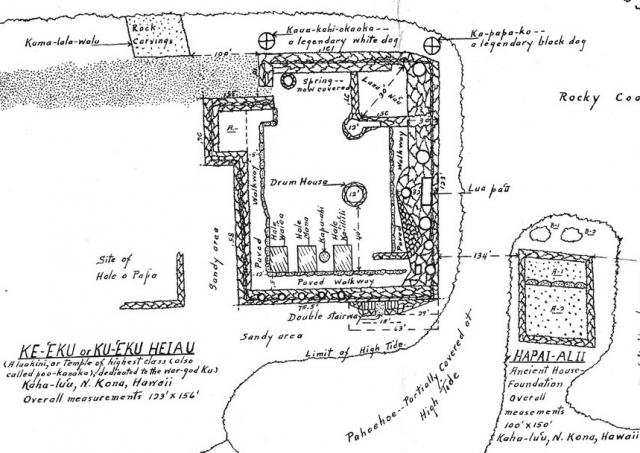 Kama-lala-walu
Rock
Carvings
100'
Kaua-kohi-okaoka--
a legendary white dog
151
Ka-papa-ko--
a legendary black dog
Rocky
Spring--
now covered
12'
A-
Walkway
Paved
Walkway
Paved
Drum House
12'
Lua pa'ū
123'
Hale
Hale
Mana
Hale
Paved Walkway
75.5'
Double stairway
Sandy area
Sandy area
134'
Site of
Hale o Papa
B-1
B-2
A-1
A-2
Limit of High Tide
Pahoehoe--Partially Covered at
High Tide
KE-'EKU or KU-'EKU HEIAU
(A luakini, or temple of highest class (also
called poo-kanaka), dedicated to the war-god Ku)
Kaha-lu'u, N. Kona, Hawaii
Overall measurements 123' X 156'
HAPAI-ALII
Ancient House
Foundation
Overall
mesements
100' x 150'
Kaha-lu'u, N. Kona, Hawaii